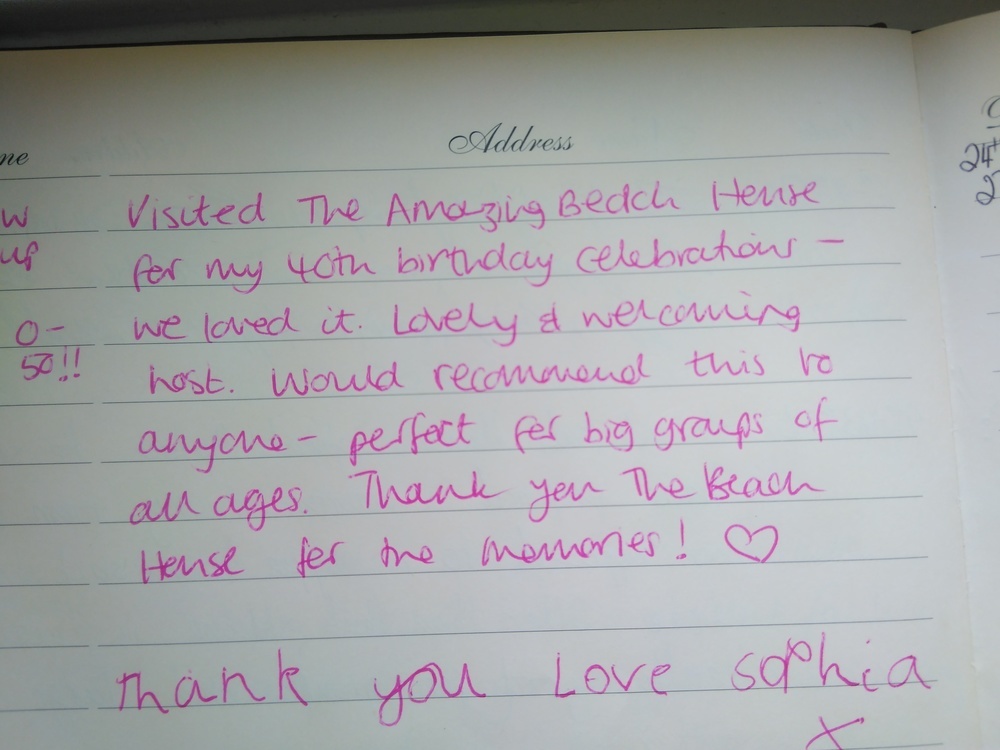 ne
Address
w
up
0-
50!!
Visited The Amazing Beach House
for my 40th birthday celebrations -
we loved it. Lovely & welcoming
host. Would recommend this to
anyone - perfect for big groups of
all ages. Thank you The Beach
House for the memories! ♡
Thank you Love sophia
x
24th
2